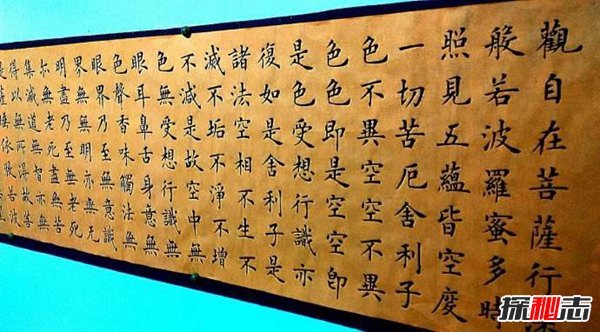 觀自在菩薩行
般若波羅蜜多時
照見五蘊皆空度
一切苦厄舍利子
色不異空空不異
色色即是空空即
是色受想行識亦
復如是舍利子是
諸法空相不生不
滅不垢不淨不增
不減是故空中無
色無受想行識無
眼耳鼻舌身意無
色聲香味觸法無
眼界乃至無意識
界無無明亦無无
明盡乃至無老死
亦無老死盡無苦
集滅道無智亦無
得以無所得故菩
探秘志